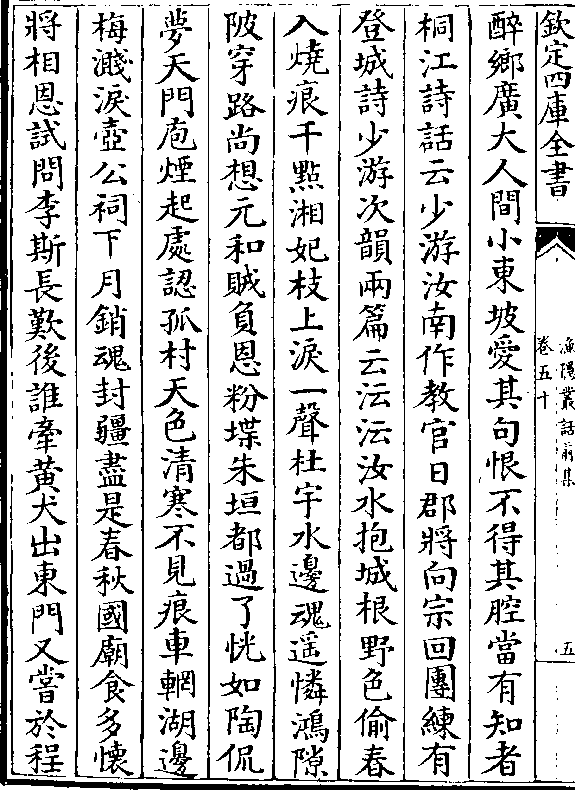 欽定四庫全書
漁隱叢話前集
卷五十
五
醉鄉廣大人間小東坡愛其句恨不得其腔當有知者
桐江詩話云少游汝南作教官日郡將向宗回團練有
登城詩少游次韻兩篇云沄沄汝水抱城根野色偷春
入燒痕千點湘妃枝上淚一聲杜宇水邊魂遥憐鴻隙
陂穿路尚想元和賊負恩粉堞朱垣都過了恍如陶侃
夢天門庖煙起處認孤村天色清寒不見痕車輞湖邊
梅濺淚壺公祠下月銷魂封疆盡是春秋國廟食多懷
將相恩試問李斯長歎後誰牽黄犬出東門又嘗於程